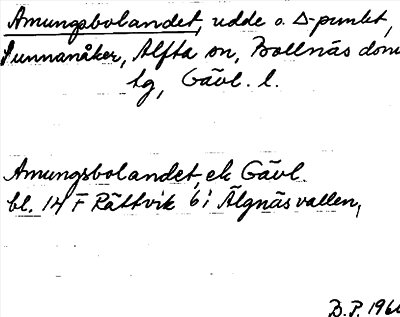 Amungsbolandet, udde o. Δ-punkt,
Sunnanåker, Alfta sn, Bollnäs doms
tg, Gävl. l.
Amungsbolandet, ek Gävl.
bl. 14 F Rättvik 6 i Älgnäsvallen,
D.P. 196